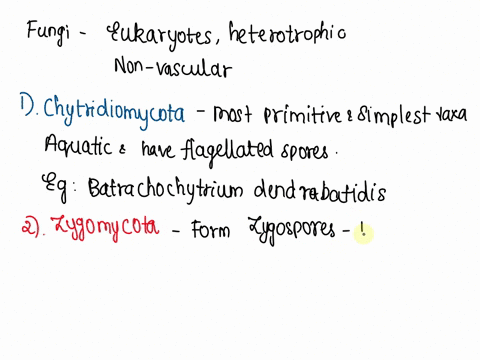 Fungi - Eukaryotes, heterotrophic
Non-vascular
1). Chytridiomycota - most primitive & simplest taxa
Aquatic & have flagellated spores.
Eg: Batrachochytrium dendrobatidis
2). Zygomycota - Form Zygospores -